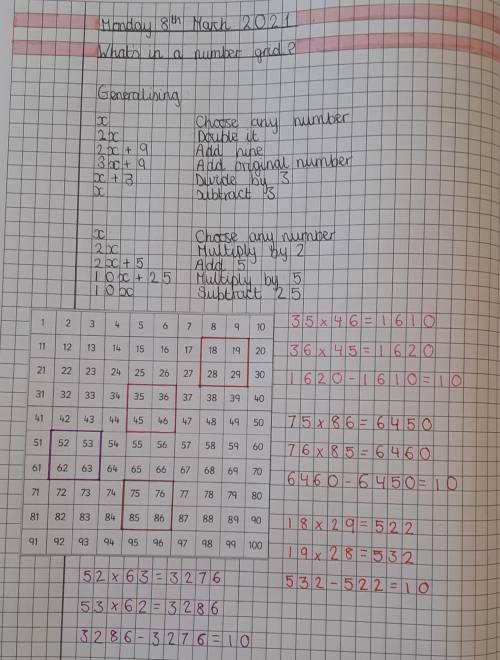 Monday 8th March 2021
What's in a number grid?
Generalising
x Choose any number
2x Double it
2x + 9 Add nine
3x + 9 Add original number
x + 3 Divide by 3
x Subtract 3
x Choose any number
2x Multiply by 2
2x + 5 Add 5
10x + 25 Multiply by 5
10x Subtract 25
1 2 3 4 5 6 7 8 9 10
11 12 13 14 15 16 17 18 19 20
21 22 23 24 25 26 27 28 29 30
31 32 33 34 35 36 37 38 39 40
41 42 43 44 45 46 47 48 49 50
51 52 53 54 55 56 57 58 59 60
61 62 63 64 65 66 67 68 69 70
71 72 73 74 75 76 77 78 79 80
81 82 83 84 85 86 87 88 89 90
91 92 93 94 95 96 97 98 99 100
35 x 46 = 1610
36 x 45 = 1620
1620 - 1610 = 10
75 x 86 = 6450
76 x 85 = 6460
6460 - 6450 = 10
18 x 29 = 522
19 x 28 = 532
532 - 522 = 10
52 x 63 = 3276
53 x 62 = 3286
3286 - 3276 = 10